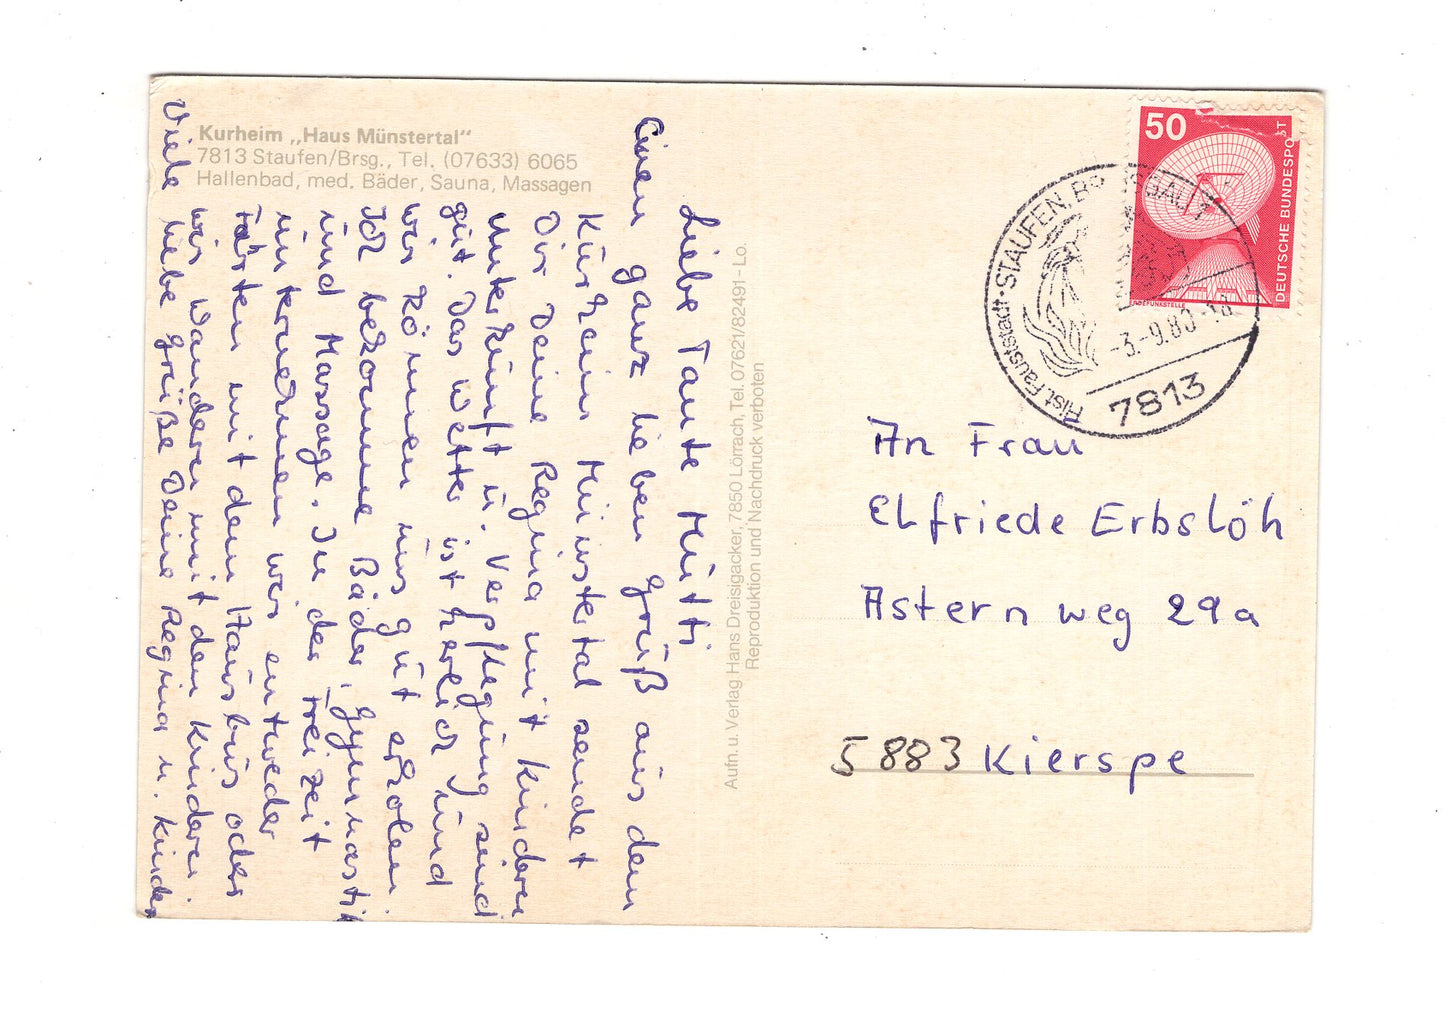 Kurheim „Haus Münstertal"
7813 Staufen/Brsg., Tel. (07633) 6065
Hallenbad, med. Bäder, Sauna, Massagen
Liebe Tante Mutti
Einen ganz lieben Gruß aus dem
Kurheim Münstertal sendet
Dir Deine Regina mit Kindern
Unterkunft u. Verpflegung sind
gut. Das Wetter ist herlich und
wir können uns gut erholen.
Ich bekomme Bäder, Gymnastik
und Massage. In der Freizeit
unternehmen wir entweder
Fahrten mit dem Hausbus oder
wir wandern mit den Kindern.
Viele liebe Grüße Deine Regina u. Kinder
Aufn. u. Verlag Hans Dreisigacker, 7850 Lörrach, Tel. 07621/82491 - Lo.
Reproduktion und Nachdruck verboten
50
DEUTSCHE BUNDESPOST
ERDEFUNKSTELLE
Hist. Fauststadt · STAUFEN, BREISGAU 1
-3.-9.80-18
7813
An Frau
Elfriede Erbslöh
Asternweg 29a
5883 Kierspe